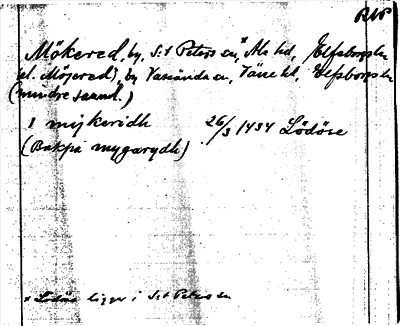 RAP
Mökered, by, S:t Peters sn,* Ale hd, Elfsborgs ln
el. Möjered), by Vassända sn, Väne hd, Elfsborgs ln
(mindre sannol.)
i mijkeridh 26/3 1434 Lödöse
(Bakpå mygarydh)
* Lödöse ligger i S:t Peters sn